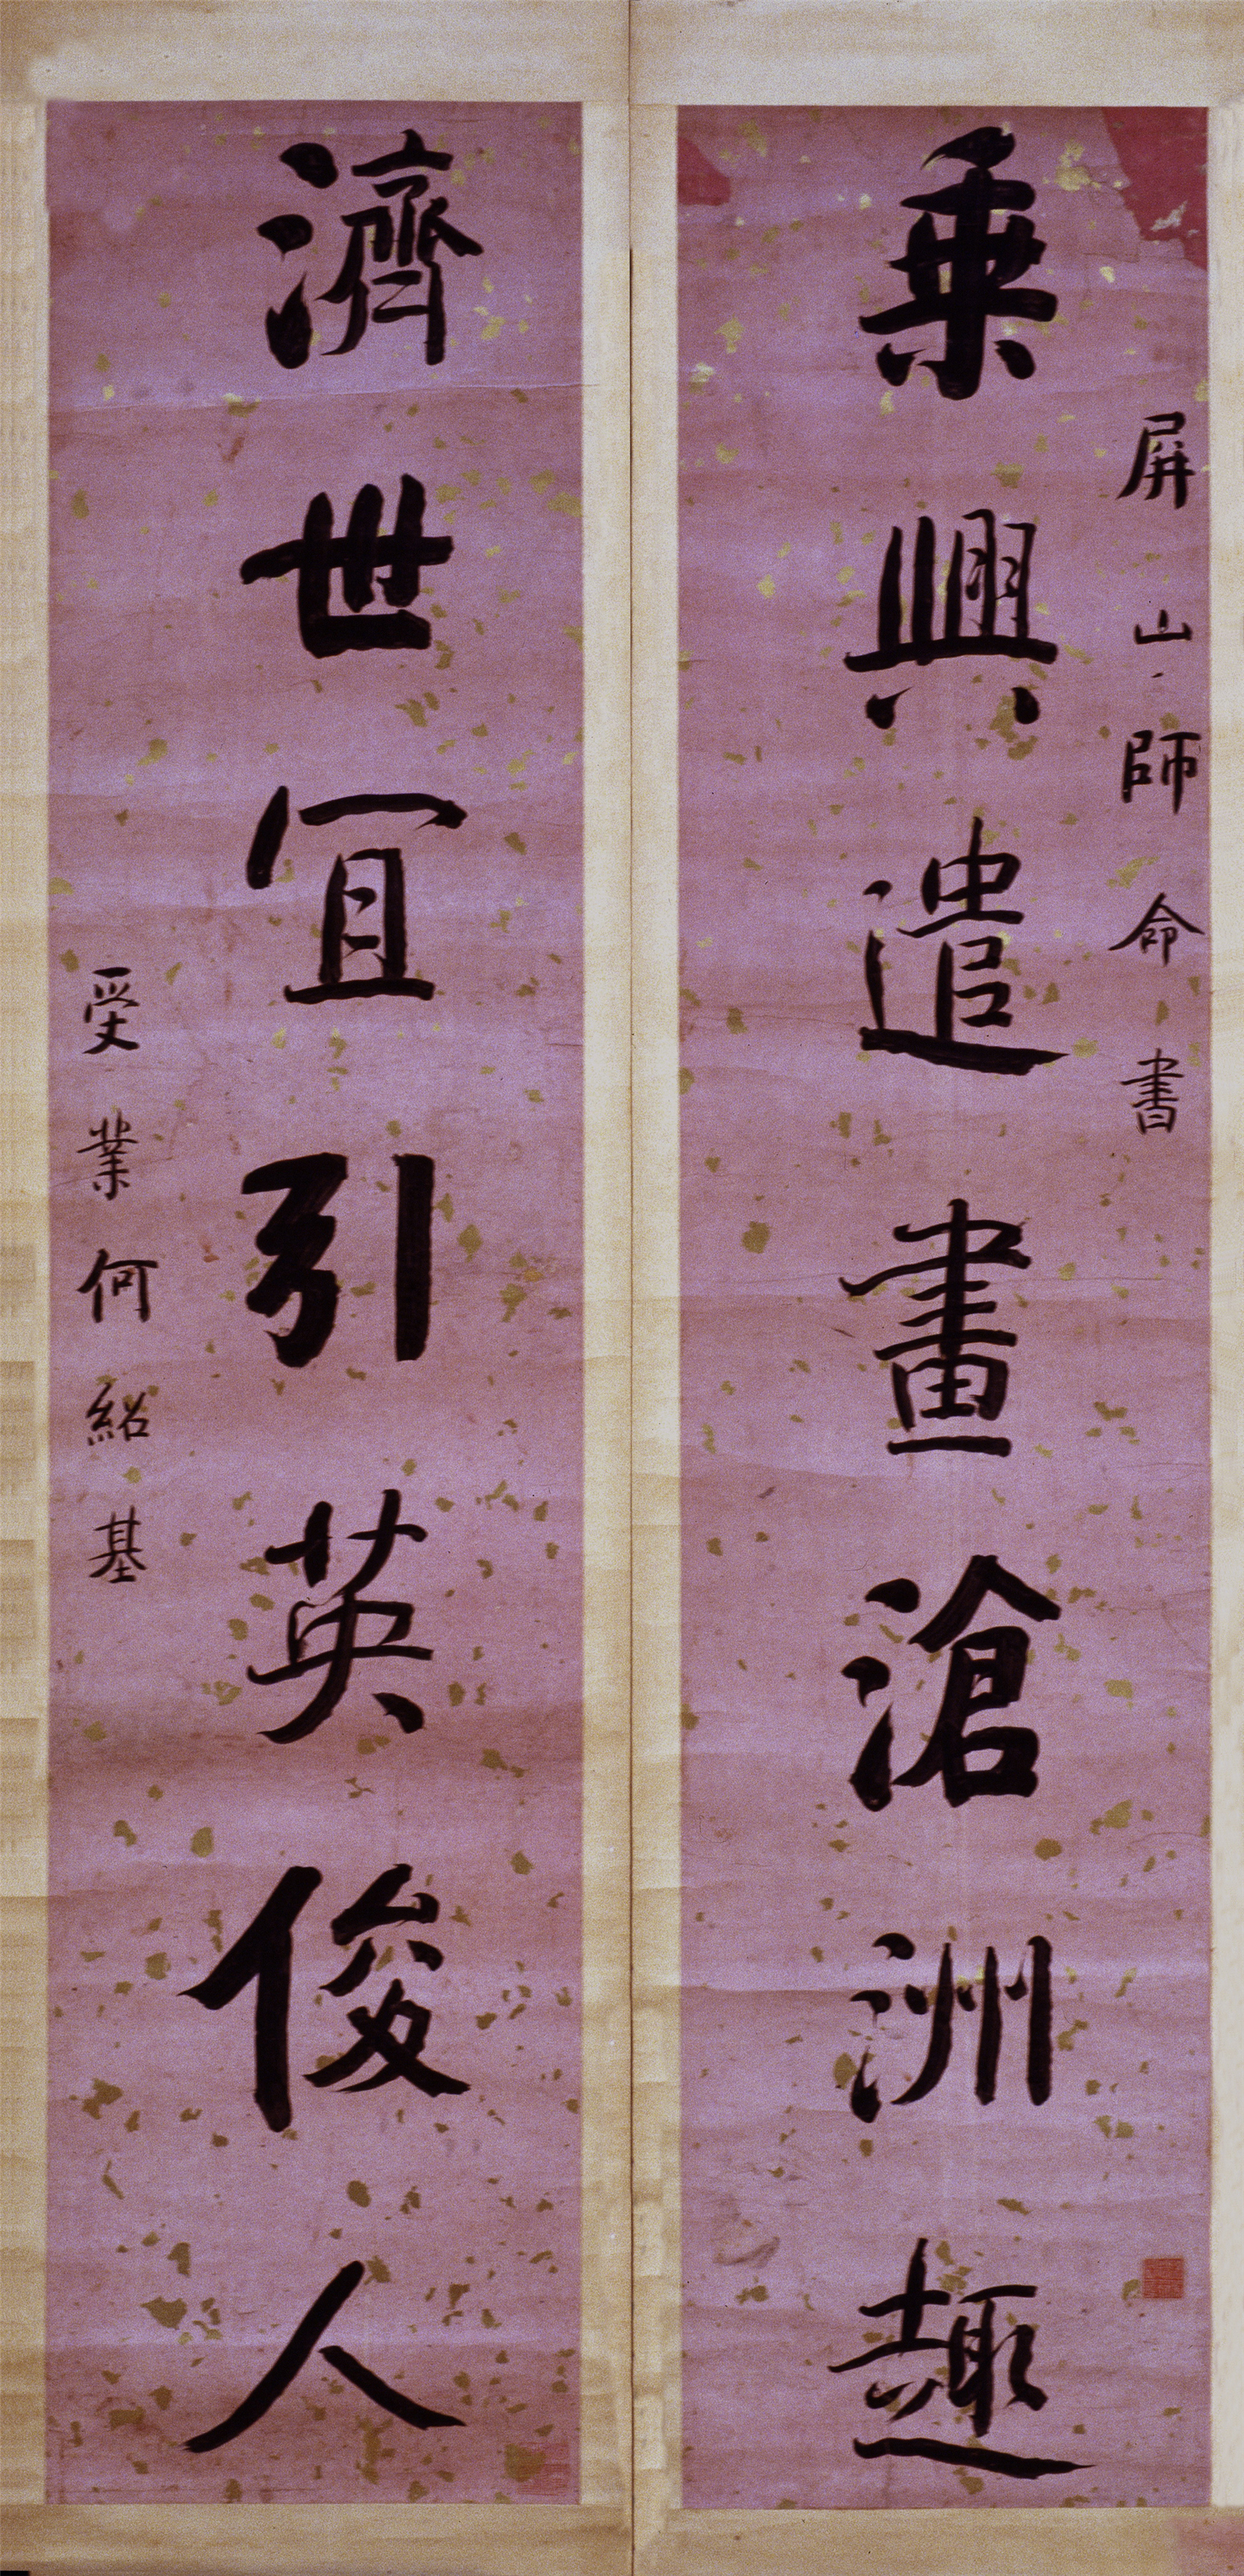 屏山師命書
乗興遣畫滄洲趣
濟世宜引英俊人
受業何紹基